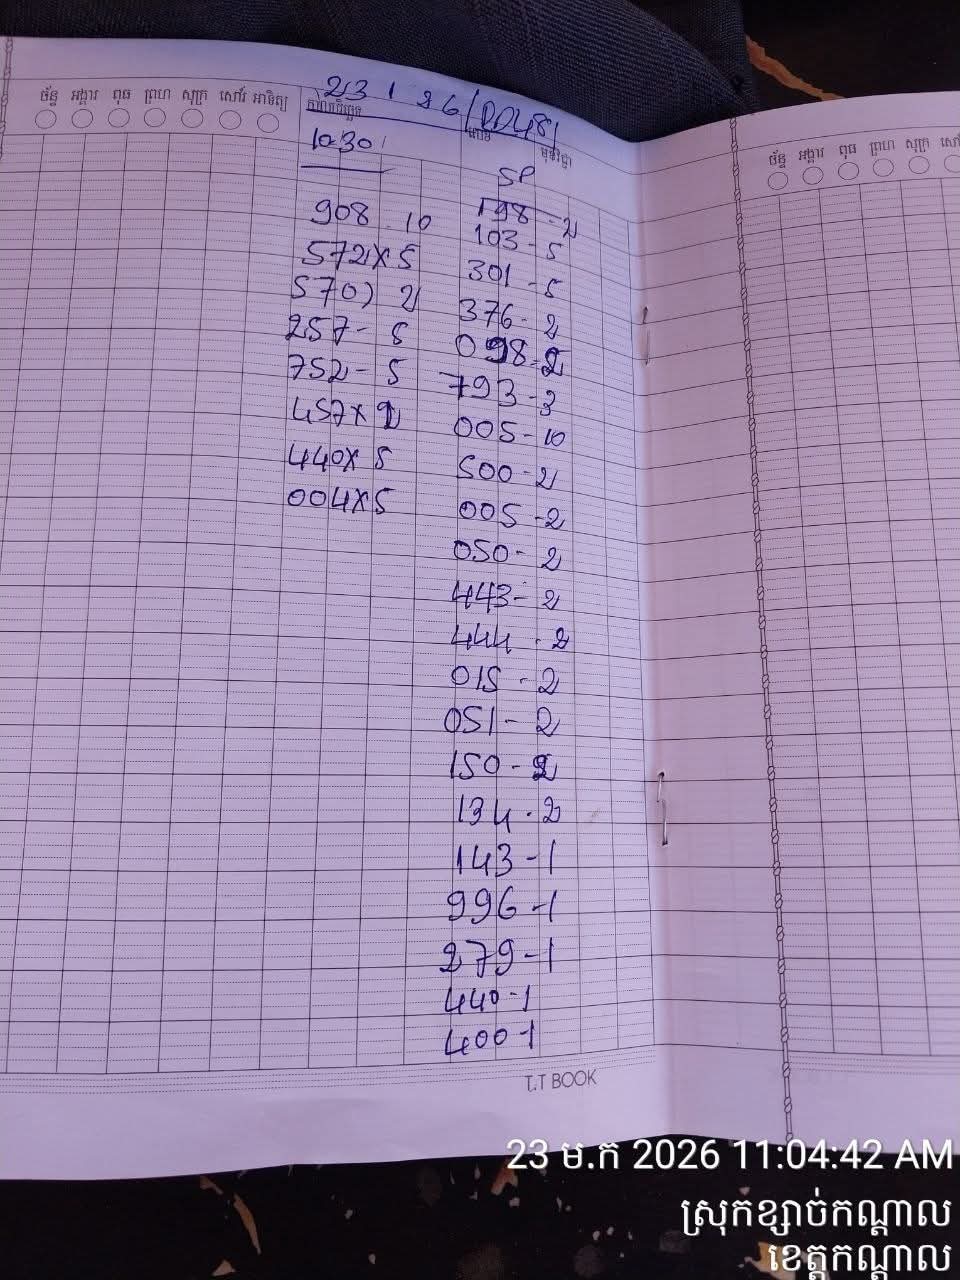 ច័ន្ទ អង្គារ ពុធ ព្រហ សុក្រ សៅរ៍ អាទិត្យ
23 1 26/DD481
កាលបរិច្ឆេទ
មុខវិជ្ជា
10:30
908 - 10
572 x 5
570) 2
257 - 5
752 - 5
457 x 2
440 x 5
004 x 5
SP
198 - 2
103 - 5
301 - 5
376 - 2
098 - 2
793 - 3
005 - 10
500 - 2
005 - 2
050 - 2
443 - 2
444 - 2
015 - 2
051 - 2
150 - 2
134 - 2
143 - 1
996 - 1
279 - 1
440 - 1
400 - 1
T.T BOOK
ច័ន្ទ អង្គារ ពុធ ព្រហ សុក្រ សៅ
23 ម.ក 2026 11:04:42 AM
ស្រុកខ្សាច់កណ្ដាល
ខេត្តកណ្ដាល